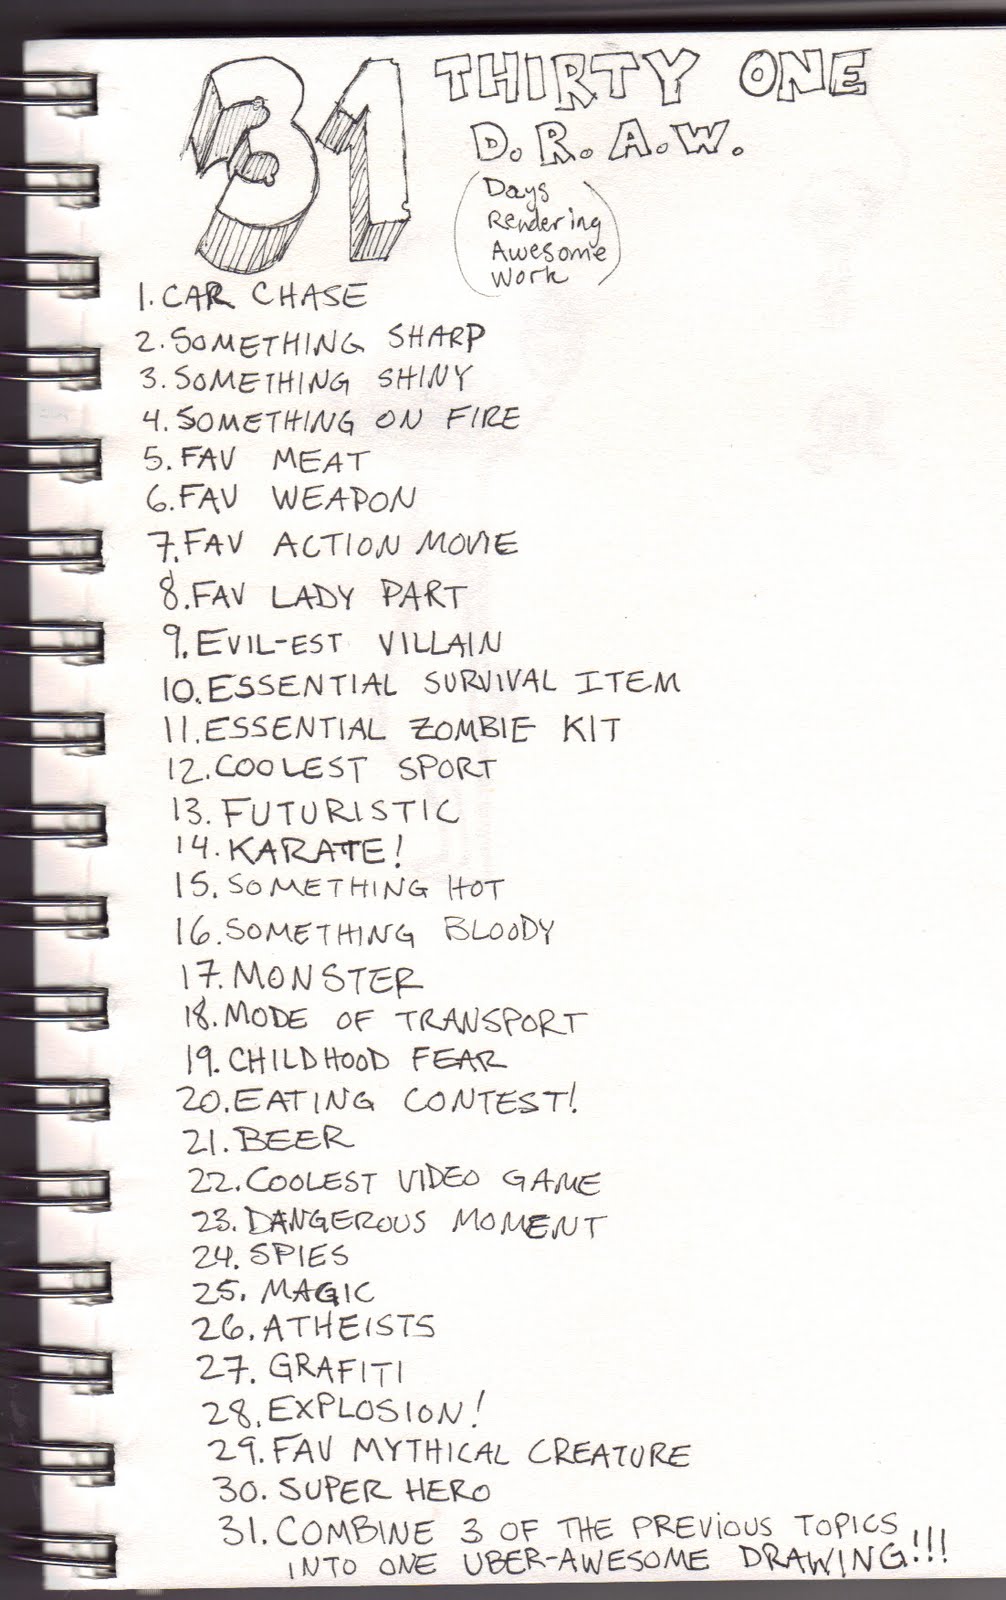 31 THIRTY ONE
D.R.A.W.
(Days
Rendering
Awesome
Work)
1. CAR CHASE
2. SOMETHING SHARP
3. SOMETHING SHINY
4. SOMETHING ON FIRE
5. FAV MEAT
6. FAV WEAPON
7. FAV ACTION MOVIE
8. FAV LADY PART
9. EVIL-EST VILLAIN
10. ESSENTIAL SURVIVAL ITEM
11. ESSENTIAL ZOMBIE KIT
12. COOLEST SPORT
13. FUTURISTIC
14. KARATE!
15. SOMETHING HOT
16. SOMETHING BLOODY
17. MONSTER
18. MODE OF TRANSPORT
19. CHILDHOOD FEAR
20. EATING CONTEST!
21. BEER
22. COOLEST VIDEO GAME
23. DANGEROUS MOMENT
24. SPIES
25. MAGIC
26. ATHEISTS
27. GRAFITI
28. EXPLOSION!
29. FAV MYTHICAL CREATURE
30. SUPER HERO
31. COMBINE 3 OF THE PREVIOUS TOPICS
INTO ONE UBER-AWESOME DRAWING!!!